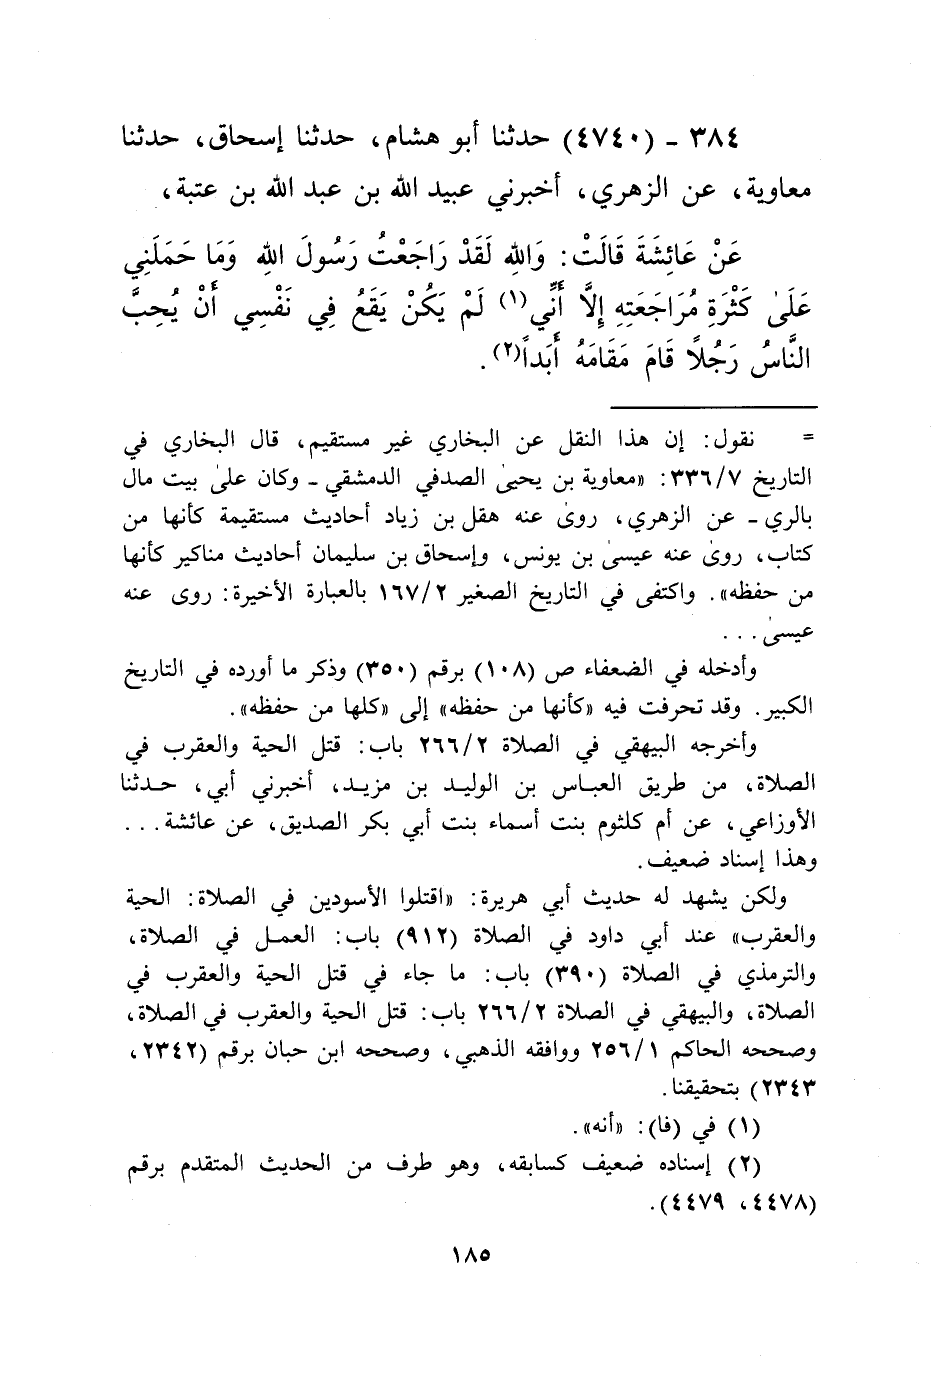 ٣٨٤ - (٤٧٤٠) حدثنا أبو هشام، حدثنا إسحاق، حدثنا
معاوية، عن الزهري، أخبرني عبيد الله بن عبد الله بن عتبة،
عَنْ عَائِشَةَ قَالَتْ: وَاللهِ لَقَدْ رَاجَعْتُ رَسُولَ اللهِ وَمَا حَمَلَنِي
عَلَىٰ كَثْرَةِ مُرَاجَعَتِهِ إِلَّا أَنِّي(١) لَمْ يَكُنْ يَقَعُ فِي نَفْسِي أَنْ يُحِبَّ
النَّاسُ رَجُلًا قَامَ مَقَامَهُ أَبَداً(٢).
= نقول: إن هذا النقل عن البخاري غير مستقيم، قال البخاري في
التاريخ ٣٣٦/٧: «معاوية بن يحيىٰ الصدفي الدمشقي - وكان علىٰ بيت مال
بالري - عن الزهري، روىٰ عنه هقل بن زياد أحاديث مستقيمة كأنها من
كتاب، روىٰ عنه عيسىٰ بن يونس، وإسحاق بن سليمان أحاديث مناكير كأنها
من حفظه». واكتفى في التاريخ الصغير ١٦٧/٢ بالعبارة الأخيرة: روى عنه
عيسىٰ...
وأدخله في الضعفاء ص (١٠٨) برقم (٣٥٠) وذكر ما أورده في التاريخ
الكبير. وقد تحرفت فيه «كأنها من حفظه» إلى «كلها من حفظه».
وأخرجه البيهقي في الصلاة ٢٦٦/٢ باب: قتل الحية والعقرب في
الصلاة، من طريق العباس بن الوليد بن مزيد، أخبرني أبي، حدثنا
الأوزاعي، عن أم كلثوم بنت أسماء بنت أبي بكر الصديق، عن عائشة...
وهذا إسناد ضعيف.
ولكن يشهد له حديث أبي هريرة: «اقتلوا الأسودين في الصلاة: الحية
والعقرب» عند أبي داود في الصلاة (٩١٢) باب: العمل في الصلاة،
والترمذي في الصلاة (٣٩٠) باب: ما جاء في قتل الحية والعقرب في
الصلاة، والبيهقي في الصلاة ٢٦٦/٢ باب: قتل الحية والعقرب في الصلاة،
وصححه الحاكم ٢٥٦/١ ووافقه الذهبي، وصححه ابن حبان برقم (٢٣٤٢،
٢٣٤٣) بتحقيقنا.
(١) في (فا): «أنه».
(٢) إسناده ضعيف كسابقه، وهو طرف من الحديث المتقدم برقم
(٤٤٧٨، ٤٤٧٩).
١٨٥